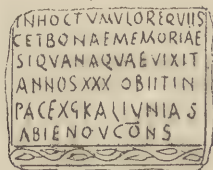 INHOCTVMVLOREQVIIS
CETBONAEMEMORIAE
SIQVANAQVAEVIXIT
ANNOSXXX OBIITIN
PACEXGKALIVNIAS
ABIENOVCŌNS